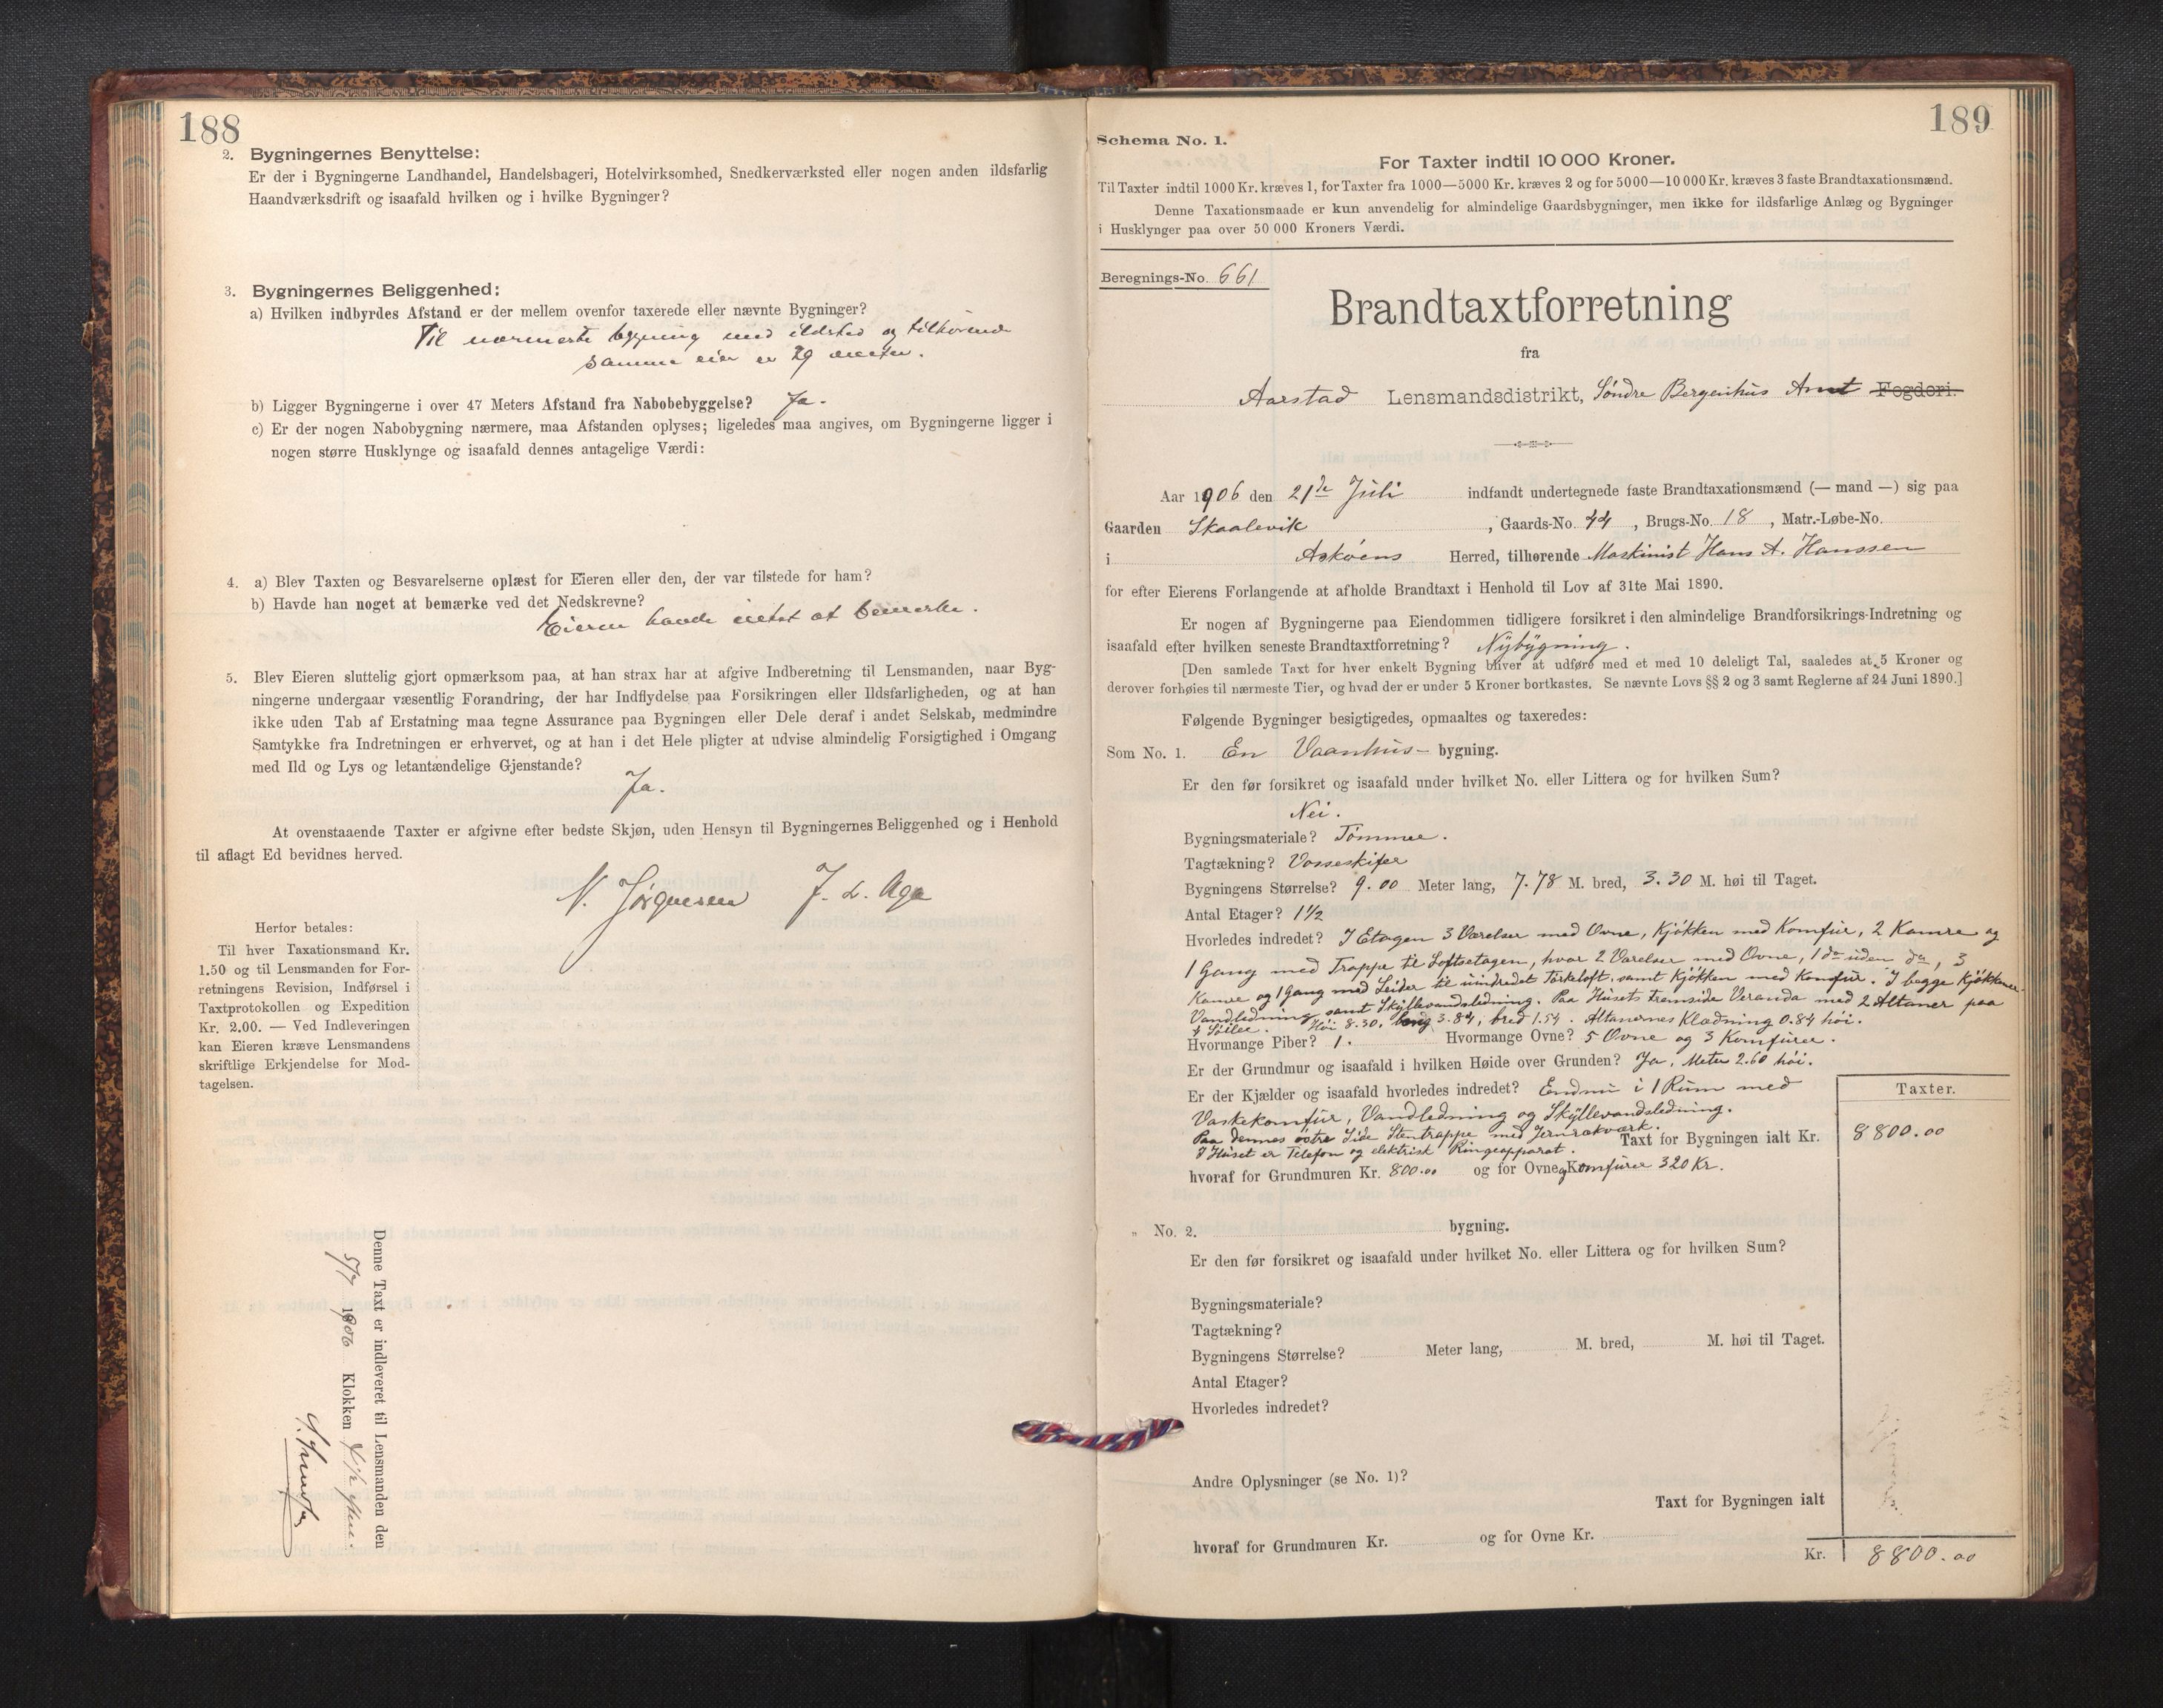 188
2. Bygningernes Benyttelse:
Er der i Bygningerne Landhandel, Handelsbageri, Hotelvirksomhed, Snedkerværksted eller nogen anden ildsfarlig
Haandværksdrift og isaafald hvilken og i hvilke Bygninger?
3. Bygningernes Beliggenhed:
a) Hvilken indbyrdes Afstand er der mellem ovenfor taxerede eller nævnte Bygninger?
Til nærmeste bygning med ildsted og tilhørende
samme eier er 29 meter.
b) Ligger Bygningerne i over 47 Meters Afstand fra Nabobebyggelse? Ja.
c) Er der nogen Nabobygning nærmere, maa Afstanden oplyses; ligeledes maa angives, om Bygningerne ligger i
nogen større Husklynge og isaafald dennes antagelige Værdi:
4. a) Blev Taxten og Besvarelserne oplæst for Eieren eller den, der var tilstede for ham?
b) Havde han noget at bemærke ved det Nedskrevne?
Eieren havde intet at bemerke.
5. Blev Eieren sluttelig gjort opmærksom paa, at han strax har at afgive Indberetning til Lensmanden, naar Byg-
ningerne undergaar væsentlig Forandring, der har Indflydelse paa Forsikringen eller Ildsfarligheden, og at han
ikke uden Tab af Erstatning maa tegne Assurance paa Bygningen eller Dele deraf i andet Selskab, medmindre
Samtykke fra Indretningen er erhvervet, og at han i det Hele pligter at udvise almindelig Forsigtighed i Omgang
med Ild og Lys og letantændelige Gjenstande?
Ja.
At ovenstaaende Taxter er afgivne efter bedste Skjøn, uden Hensyn til Bygningernes Beliggenhed og i Henhold
til aflagt Ed bevidnes herved.
N. Jørgensen J. L. Aga
Herfor betales:
Til hver Taxationsmand Kr.
1.50 og til Lensmanden for For-
retningens Revision, Indførsel i
Taxtprotokollen og Expedition
Kr. 2.00. — Ved Indleveringen
kan Eieren kræve Lensmandens
skriftlige Erkjendelse for Mod-
tagelsen.
Denne Taxt er indleveret til Lensmanden den
1906 Klokken
189
Schema No. 1.
For Taxter indtil 10 000 Kroner.
Til Taxter indtil 1000 Kr. kræves 1, for Taxter fra 1000—5000 Kr. kræves 2 og for 5000—10 000 Kr. kræves 3 faste Brandtaxationsmænd.
Denne Taxationsmaade er kun anvendelig for almindelige Gaardsbygninger, men ikke for ildsfarlige Anlæg og Bygninger
i Husklynger paa over 50 000 Kroners Værdi.
Beregnings-No. 661
Brandtaxtforretning
fra
Aarstad Lensmandsdistrikt, Søndre Bergenhus Amt Fogderi.
Aar 1906 den 21de Juli indfandt undertegnede faste Brandtaxationsmænd (— mand —) sig paa
Gaarden Skaalevik, Gaards-No. 44, Brugs-No. 18, Matr.-Løbe-No.
i Askøens Herred, tilhørende Maskinist Hans A. Hanssen
for efter Eierens Forlangende at afholde Brandtaxt i Henhold til Lov af 31te Mai 1890.
Er nogen af Bygningerne paa Eiendommen tidligere forsikret i den almindelige Brandforsikrings-Indretning og
isaafald efter hvilken seneste Brandtaxtforretning? Nybygning.
[Den samlede Taxt for hver enkelt Bygning bliver at udføre med et med 10 deleligt Tal, saaledes at 5 Kroner og
derover forhøies til nærmeste Tier, og hvad der er under 5 Kroner bortkastes. Se nævnte Lovs §§ 2 og 3 samt Reglerne af 24 Juni 1890.]
Følgende Bygninger besigtigedes, opmaaltes og taxeredes:
Som No. 1. En Vaanhus- bygning.
Er den før forsikret og isaafald under hvilket No. eller Littera og for hvilken Sum?
Nei.
Bygningsmateriale? Tømmer.
Tagtækning? Vosseskifer
Bygningens Størrelse? 9.00 Meter lang, 7.78 M. bred, 3.30 M. høi til Taget.
Antal Etager? 1½
Hvorledes indredet? I Etagen 3 Værelser med Ovne, Kjøkken med Komfür, 2 Kamre og
1 Gang med Trappe til Loftsetagen, hvor 2 Værelser med Ovne, 1 do uden do, 3
Kamre og 1 Gang med Leider til uindredet Tørkeloft, samt Kjøkken med Komfür. I begge Kjøkkener
Vandledning samt Skyllevandsledning. Paa Husets Fremside Veranda med 2 Altaner paa
4 Søiler. Høi 8.30, lang 3.84, bred 1.54. Altanernes Klædning 0.84 høi.
Hvormange Piber? 1. Hvormange Ovne? 5 Ovne og 3 Komfürer.
Er der Grundmur og isaafald i hvilken Høide over Grunden? Ja, Meter 2.60 høi.
Er der Kjælder og isaafald hvorledes indredet? Endnu i 1 Rum med
Vaskekomfür, Vandledning og Skyllevandsledning.
Paa dennes østre Side Stentrappe med Jernrækværk.
I Huset er Telefon og elektrisk Ringeapparat.
Taxter.
Taxt for Bygningen ialt Kr. 8800.00
hvoraf for Grundmuren Kr. 800.00 og for Ovne og Komfürer 320 Kr.
„ No. 2. bygning.
Er den før forsikret og isaafald under hvilket No. eller Littera og for hvilken Sum?
Bygningsmateriale?
Tagtækning?
Bygningens Størrelse? Meter lang, M. bred, M. høi til Taget.
Antal Etager?
Hvorledes indredet?
Andre Oplysninger (se No. 1)?
Taxt for Bygningen ialt
hvoraf for Grundmuren Kr. og for Ovne Kr.
Kr. 8800.00